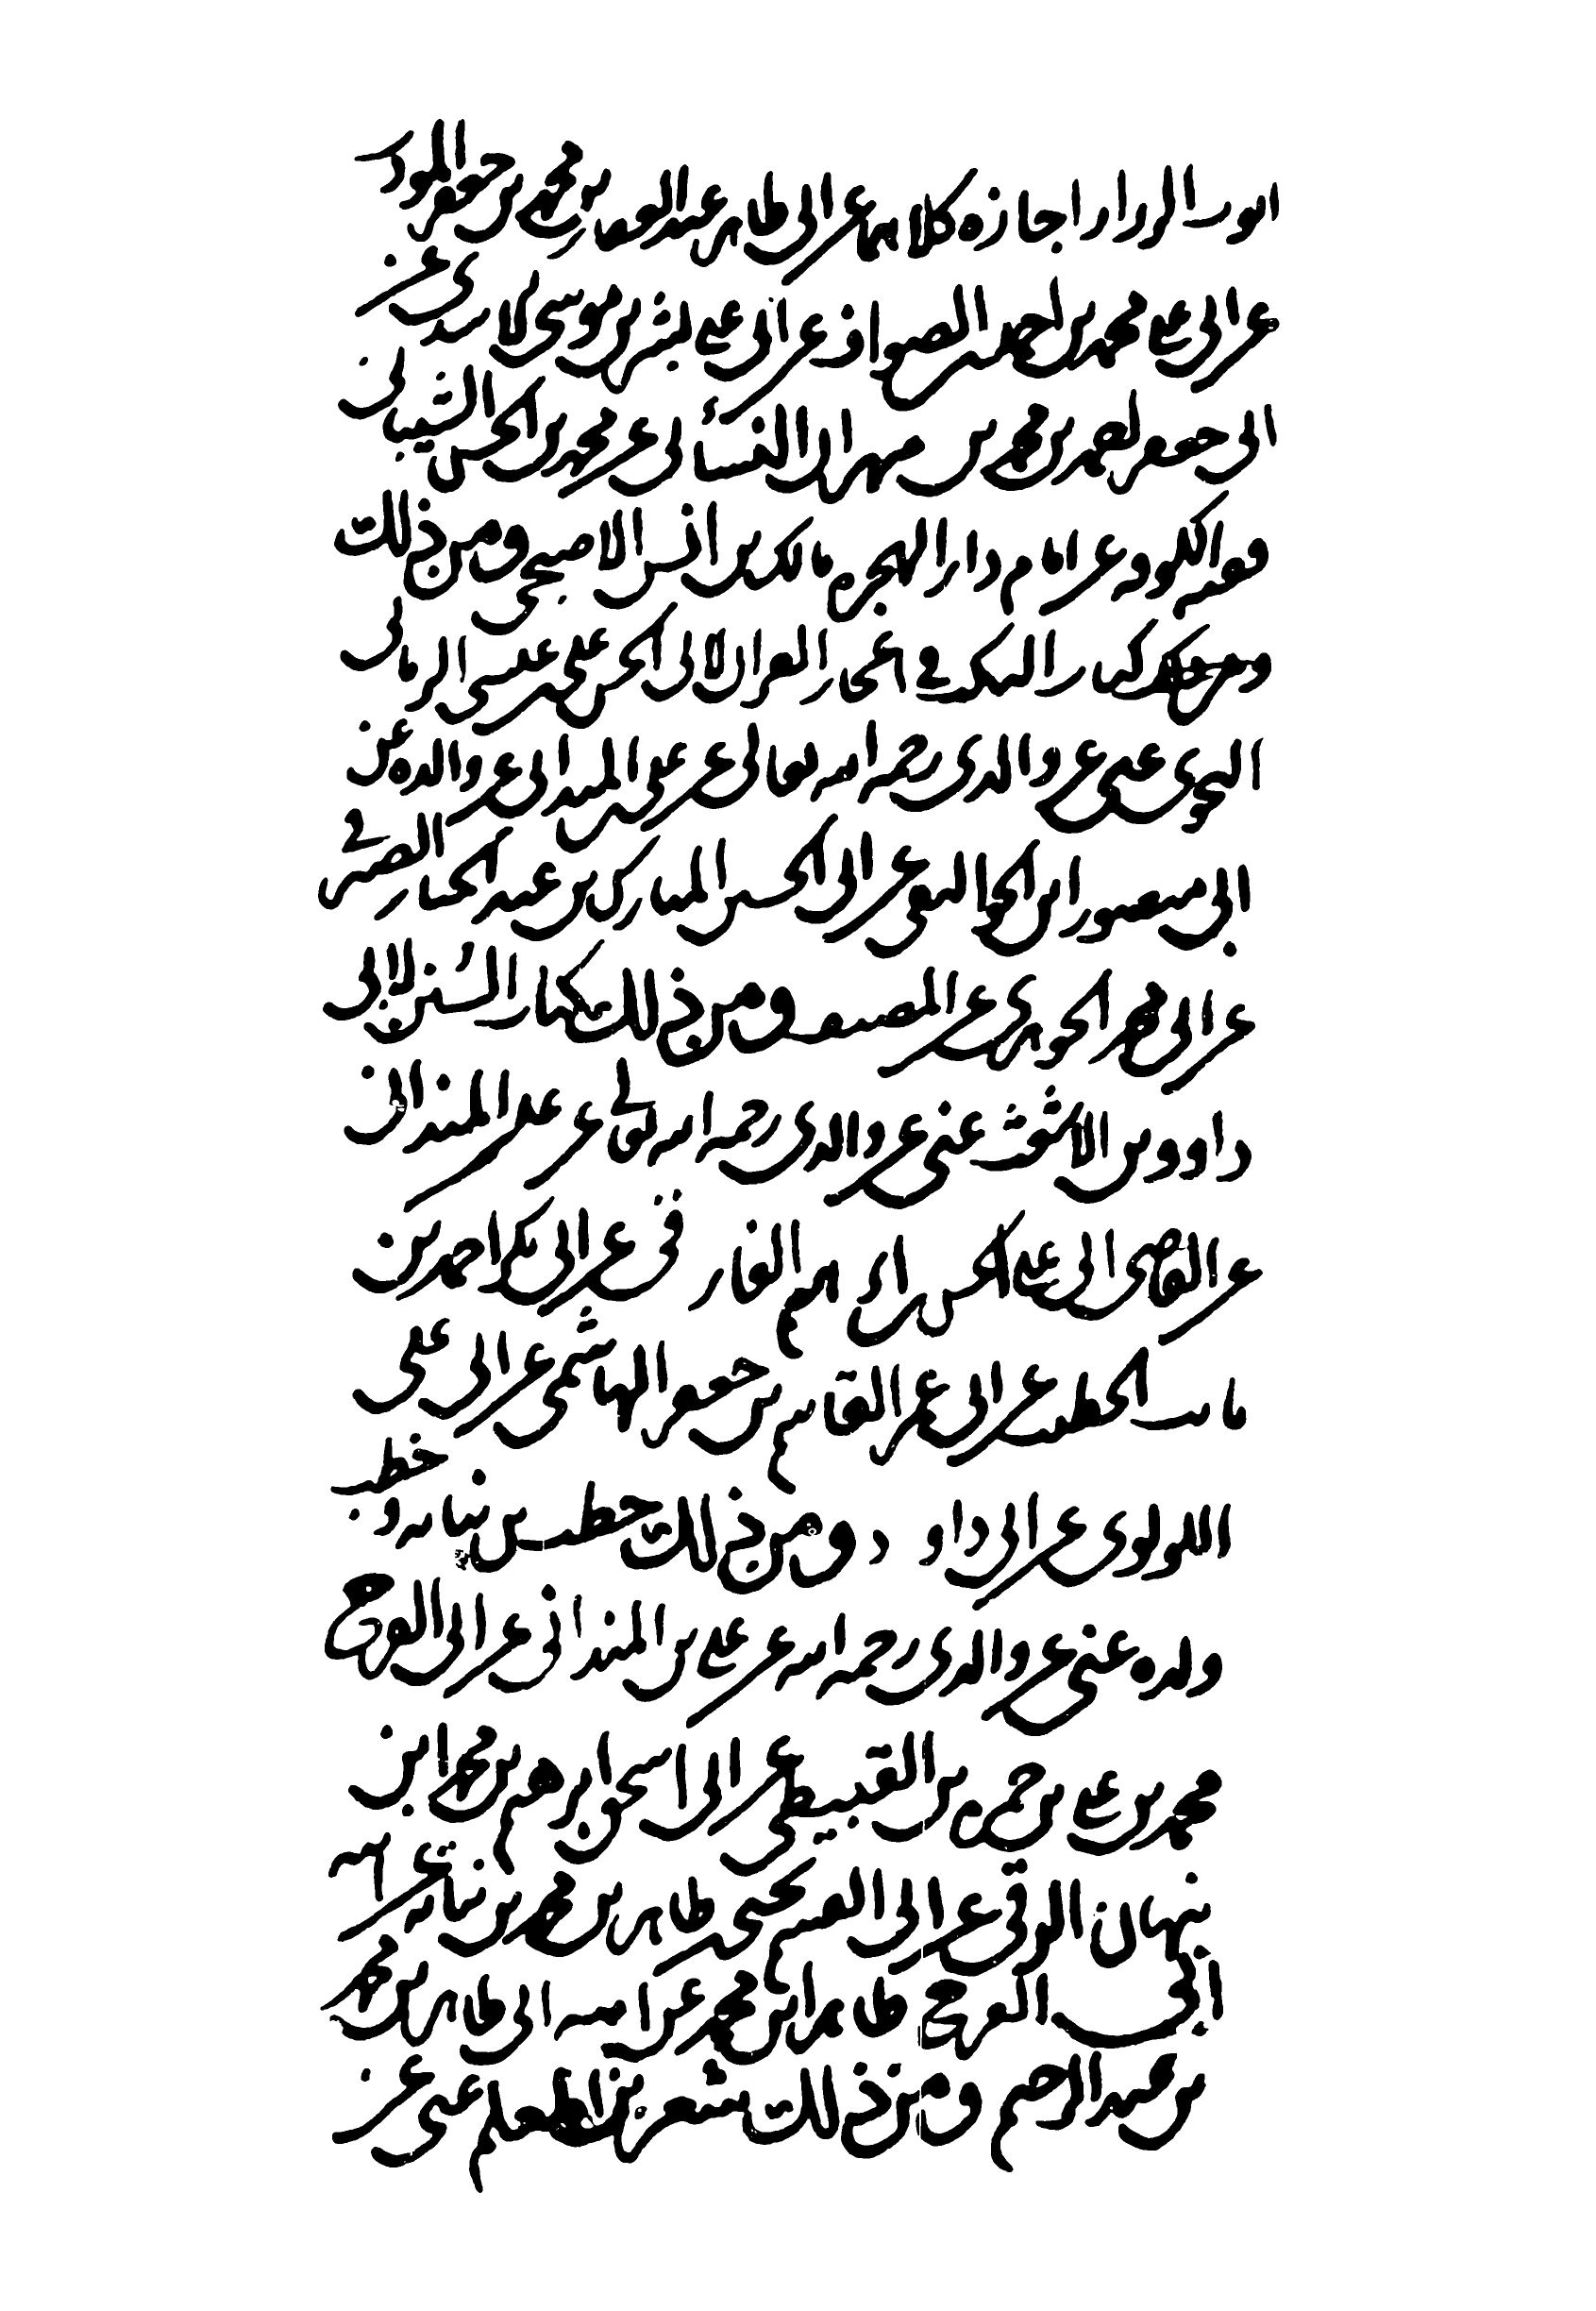 ايوب البزاز اجازه كلاهما عن ابى طاهر عبد الغفار بن محمد بن جعفر المودب
عن ابى على محمد بن احمد الصواف عن ابى على بشر بن موسى الاسدى عن
ابى جعفر احمد بن محمد بن مهران النسائى عن محمد بن الحسن الشيبانى
فقيه الكوفه عن امام دار الهجره مالك بن انس الاصبحى ومن ذلك
كتاب النكت فى اعجاز القران لابى الحسن على بن عيسى الرمانى
النحوى عنى عن والدى رحمه الله تعالى عن على بن المندائى عن والده عن
ابى منصور ابن الجواليقى عن ابى الحسين المبارك بن عبد الجبار الصيرفى
عن ابى محمد الجوهرى عن المصنف ومن ذلك كتاب السنن لابى
داوود بن الاشعث عنى عن والدى رحمه الله تعالى عن على بن المندائى
عن القاضى ابى على الحسن بن ابراهيم الفارقى عن ابى بكر احمد بن
ثابت الخطيب عن ابى عمر القاسم بن جعفر الهاشمى عن ابى على
اللولوى عن ابى داود ومن ذلك خطب بن نباته وخطب
ولده عنى عن والدى رحمه الله عن على بن المندائى عن ابى الفرج
محمد بن على بن حمزه بن القبيطى عن ابى اسحق ابرهيم بن محمد ابن
نبهان الرقى عن ابى القسم يحيى بن طاهر بن محمد بن نباته عن ابيه
ابى الفرج طاهر ابن محمد عن ابيه ابى طاهر محمد
بن عبد الرحيم ومن ذلك شعر بن المعلم عنى عن